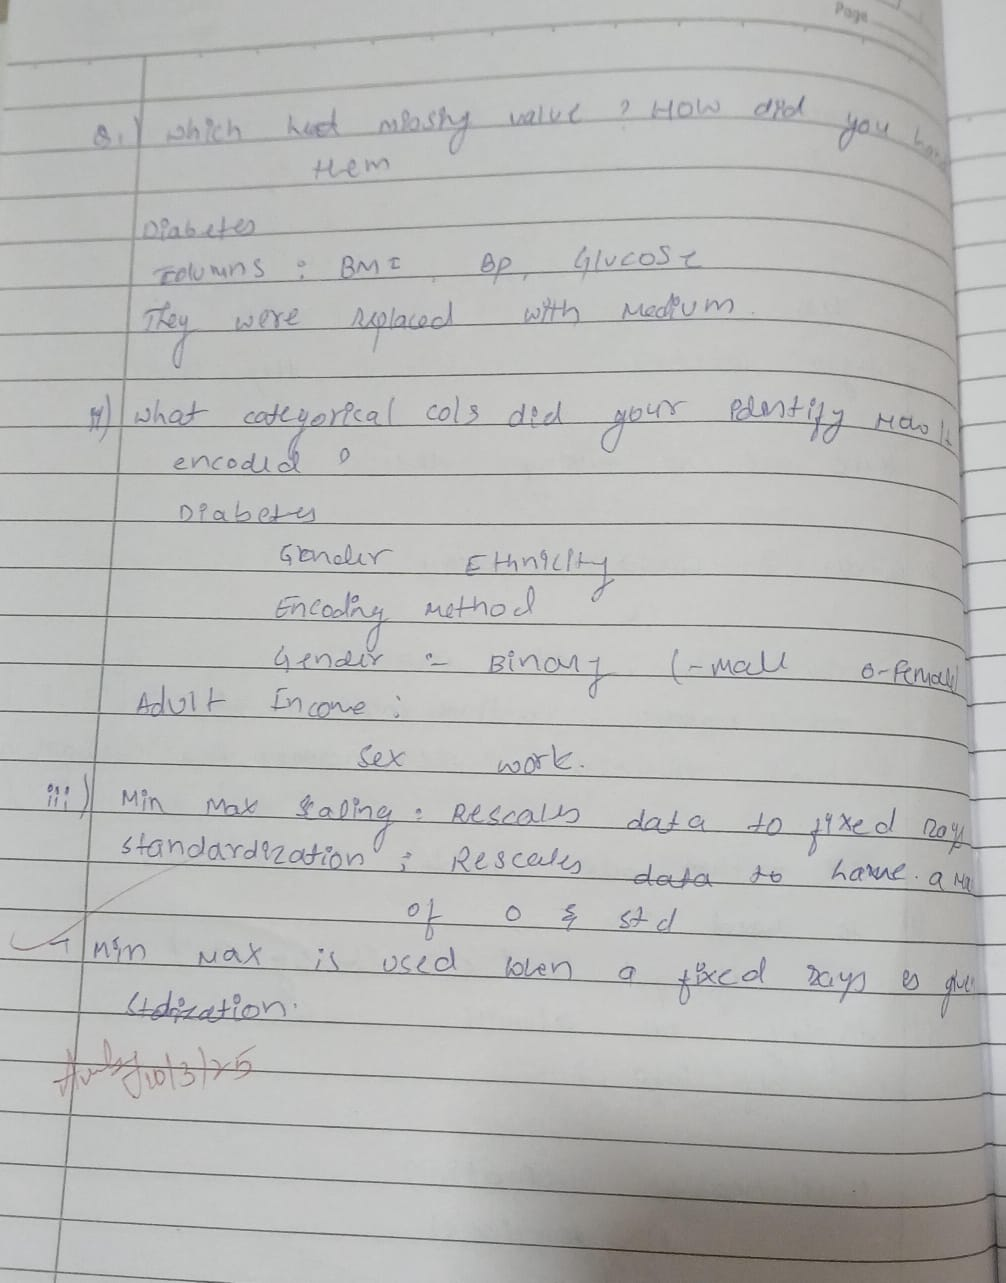 Page
Q.) which had missing value ? How did you
them
Diabetes
columns : BMI, BP, Glucose
They were replaced with Medium.
ii) what categorical cols did your identify How
encoded ?
Diabetes
Gender Ethnicity
Encoding method
Gender :- Binary 1-male 0-female
Adult Income :
Sex work.
iii) Min Max Scaling : Rescales data to fixed
standardization : Rescales data to have a
of 0 & std
Min Max is used when a fixed is
Stdization.
10/3/25